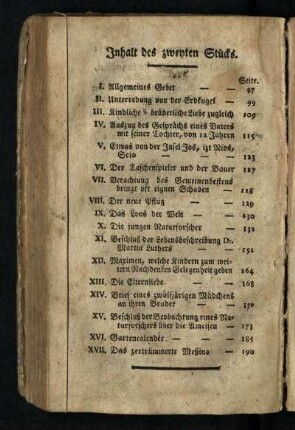 Inhalt des zweyten Stücks.
Seite.
I. Allgemeines Gebet — — 97
II. Unterredung von der Erdkugel — 99
III. Kindliche u. brüderliche Liebe zugleich 109
IV. Auszug des Gesprächs eines Vaters
mit seiner Tochter, von 12 Jahren 115
V. Etwas von der Insel Jos, izt Nios,
Scio — — — 123
VI. Der Taschenspieler und der Bauer 127
VII. Verachtung des Gemeinenbestens
bringt oft eignen Schaden — 128
VIII. Der neue Pflug — — 129
IX. Das Loos der Welt — — 130
X. Die jungen Naturforscher — 132
XI. Beschluß der Lebensbeschreibung Dr.
Martin Luthers — — 152
XII. Maximen, welche Kindern zum wei-
tern Nachdenken Gelegenheit geben 164
XIII. Die Elternliebe — — 168
XIV. Brief eines zwölfjärigen Mädchens
an ihren Bruder — — 170
XV. Beschluß der Beobachtung eines Na-
turforschers über die Ameisen — 173
XVI. Gartencalender — — 185
XVII. Das zertrümmerte Meßina — 190